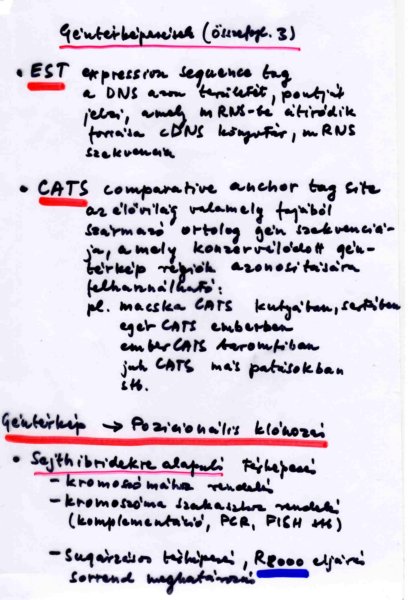 Géntérképezések (összefogl. 3)
• EST expression sequence tag
a DNS azon területét, pontját
jelzi, amely mRNS-be átíródik
forrása cDNS könyvtár, mRNS
szekvencia
• CATS comparative anchor tag site
az élővilág valamely fajából
származó ortolog gén szekvenciá-
ja, amely konzerválódott gén-
térkép régiók azonosítására
felhasználható:
pl. macska CATS kutyában, sertésben
egér CATS emberben
ember CATS baromfiban
juh CATS más patásokban
stb.
Géntérkép → Pozicionális klónozás
• Sejthibridekre alapuló térképezés
- kromoszómához rendelés
- kromoszóma szakaszhoz rendelés
(komplementáció, PCR, FISH stb)
- Sugárzásos térképezés, R8000 eljárás
sorrend meghatározás